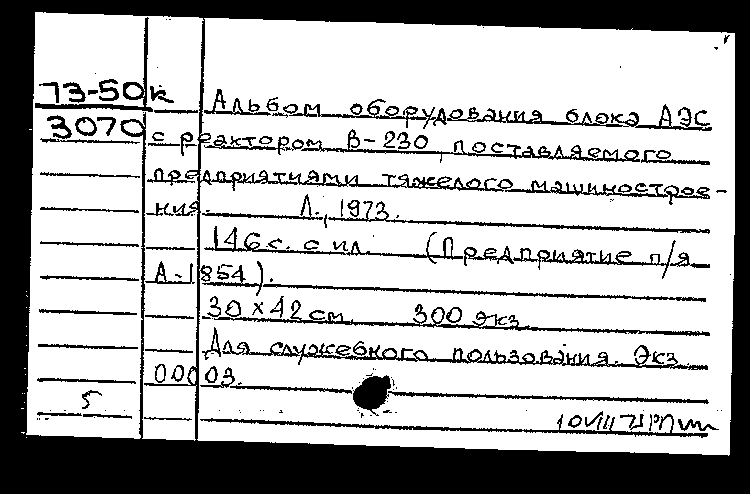 73-50к Альбом оборудования блока АЭС
3070 с реактором В-230, поставляемого
предприятиями тяжелого машинострое-
ния. Л., 1973.
146 с. с ил. (Предприятие п/я
А-1854).
30 × 42 см. 300 экз.
Для служебного пользования. Экз.
00003.
5